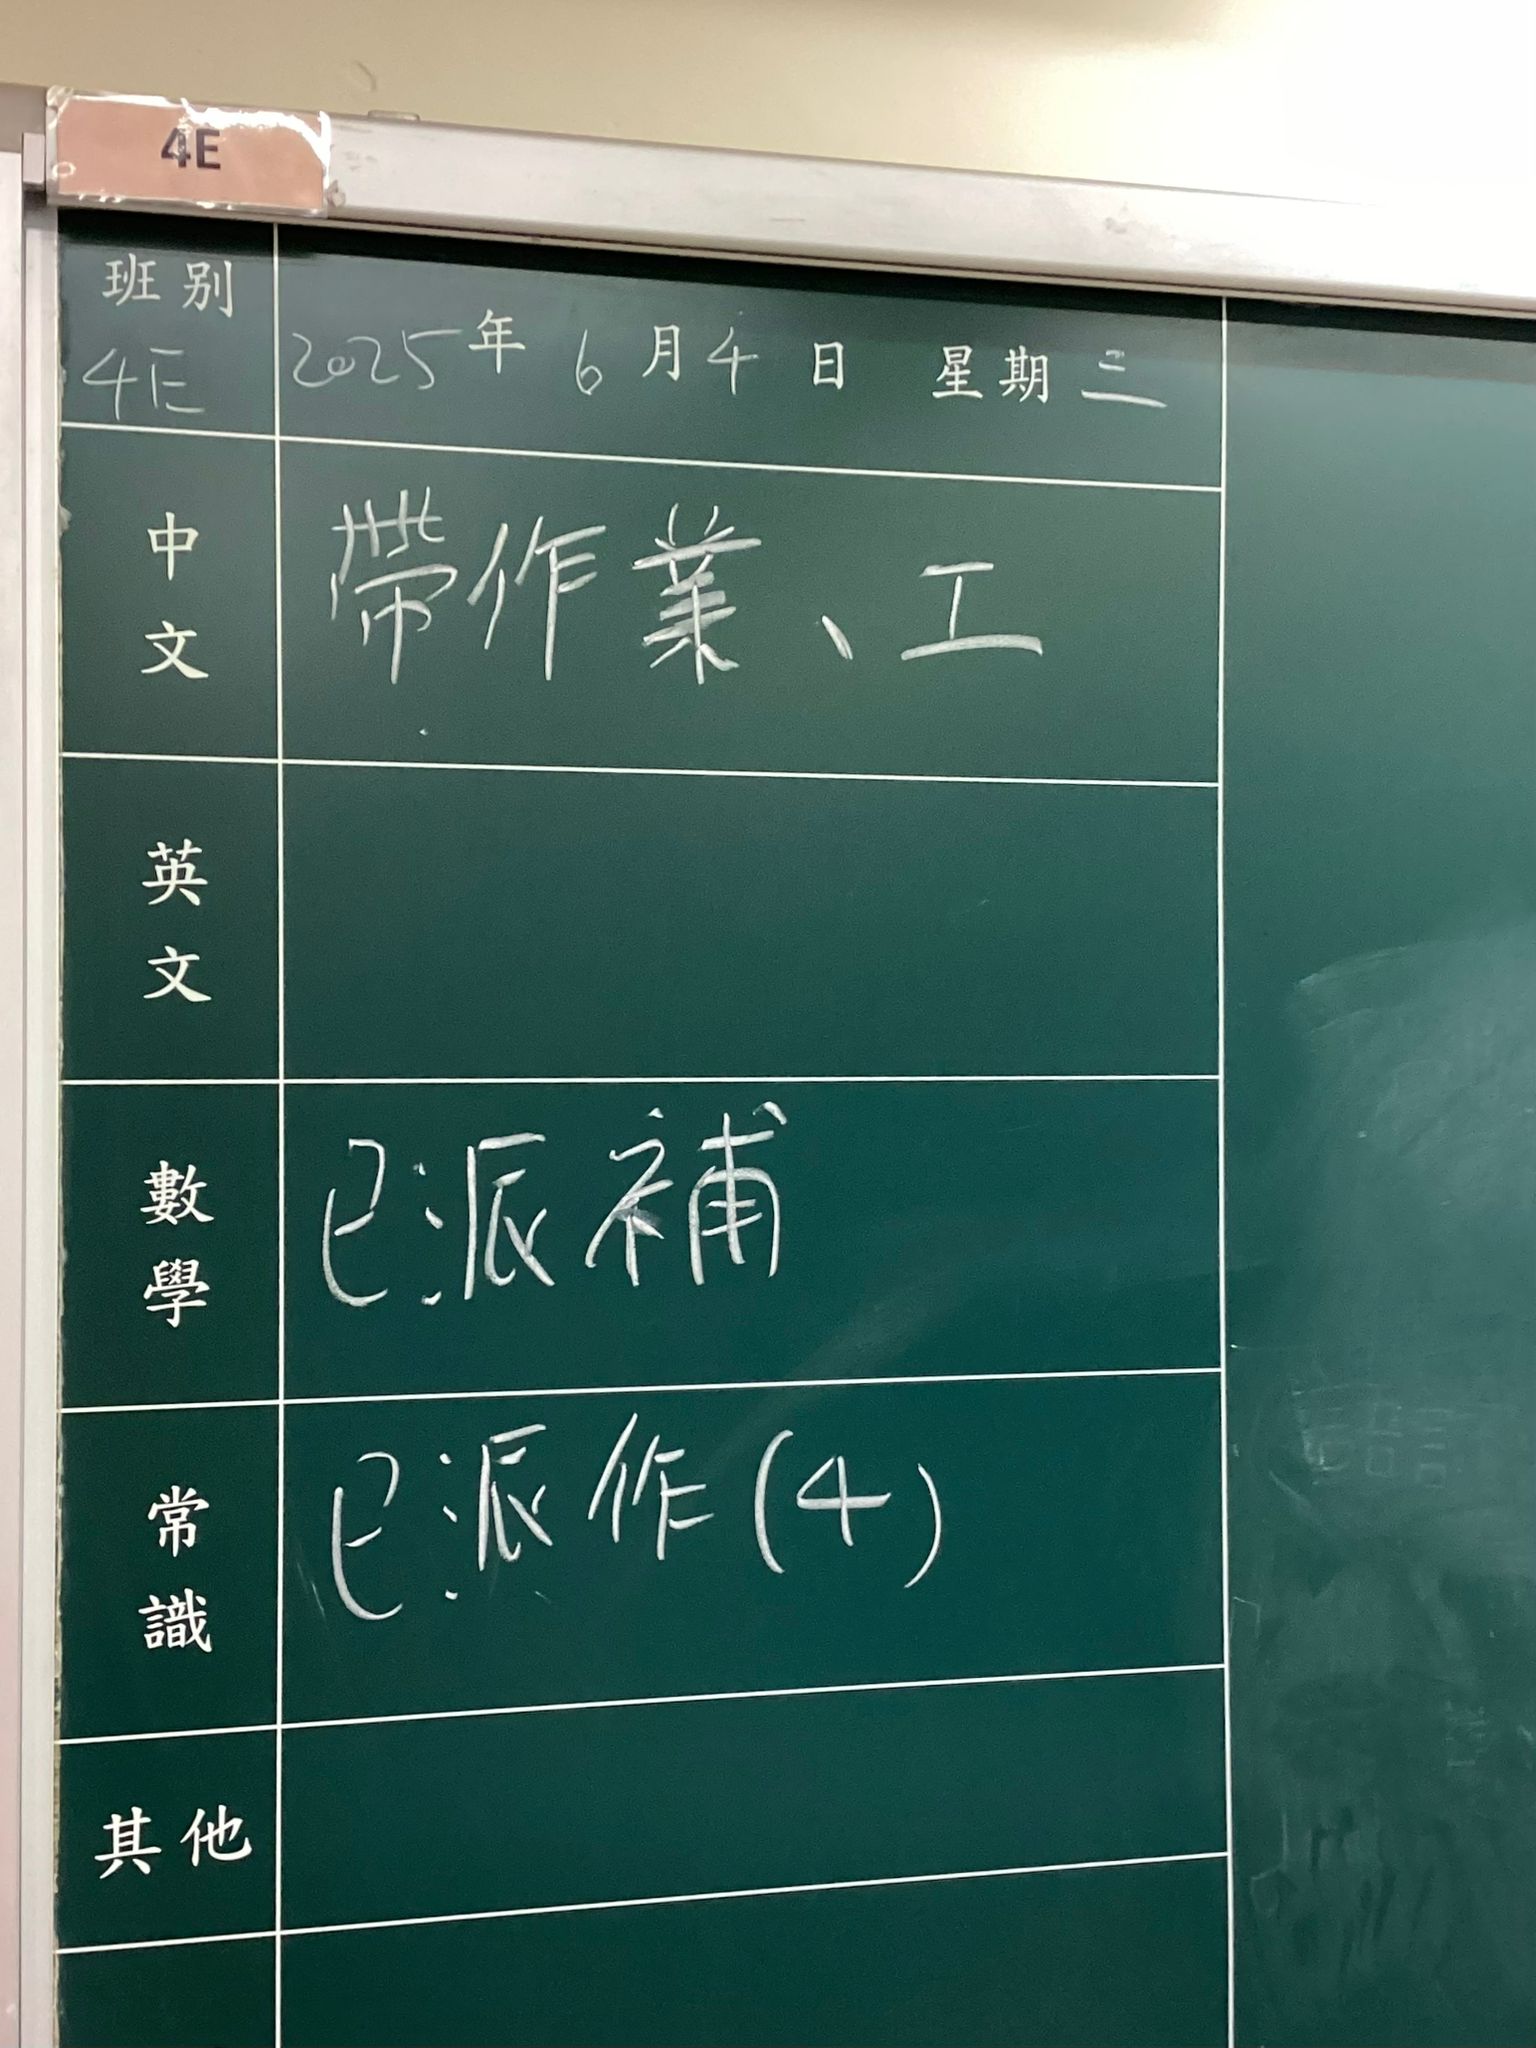 4E
班別
4E
2025年6月4日 星期三
中文
帶作業、工
英文
數學
已派補
常識
已派作(4)
其他